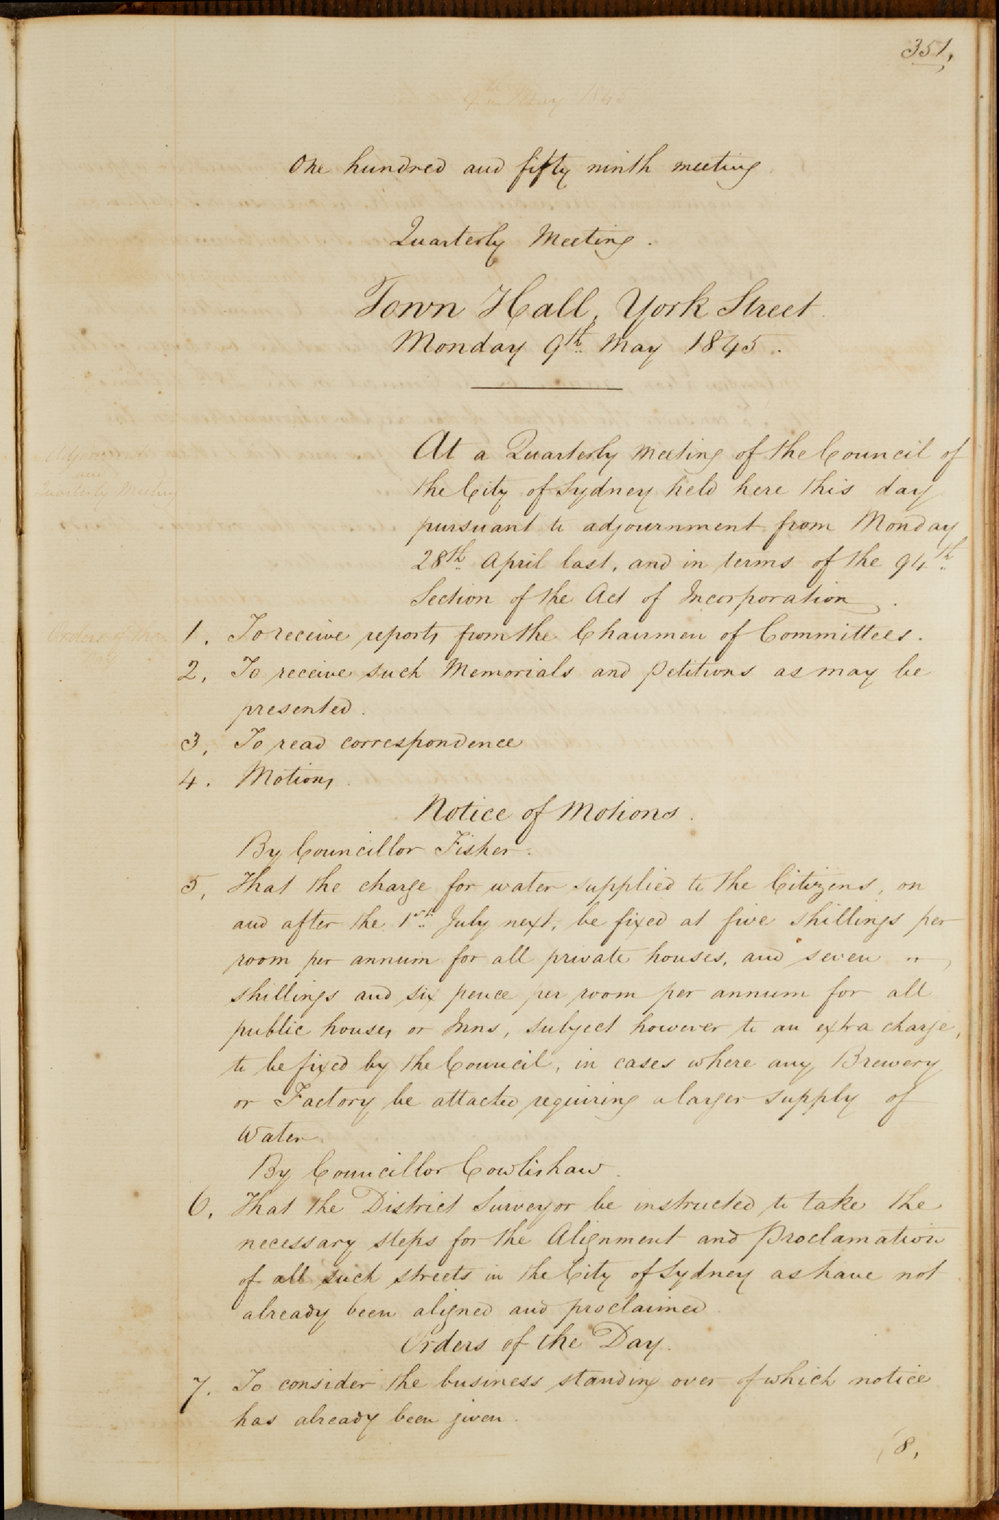 351,
One hundred and fifty ninth meeting.
Quarterly Meeting.
Town Hall, York Street.
Monday 9th May 1845.
At a Quarterly Meeting of the Council of
the City of Sydney held here this day
pursuant to adjournment from Monday
28th April last, and in terms of the 94th
Section of the Act of Incorporation.
1. To receive reports from the Chairmen of Committees.
2, To receive such Memorials and Petitions as may be
presented.
3, To read correspondence
4. Motions.
Notice of Motions.
By Councillor Fisher.
5, That the charge for water supplied to the Citizens, on
and after the 1st July next, be fixed at five shillings per
room per annum for all private houses, and seven
shillings and six pence per room per annum for all
public houses or Inns, subject however to an extra charge,
to be fixed by the Council, in cases where any Brewery
or Factory be attached requiring a larger supply of
Water
By Councillor Cowlishaw.
6. That the District Surveyor be instructed to take the
necessary steps for the Alignment and Proclamation
of all such streets in the City of Sydney as have not
already been aligned and proclaimed.
Orders of the Day.
7. To consider the business standing over of which notice
has already been given.
(8,